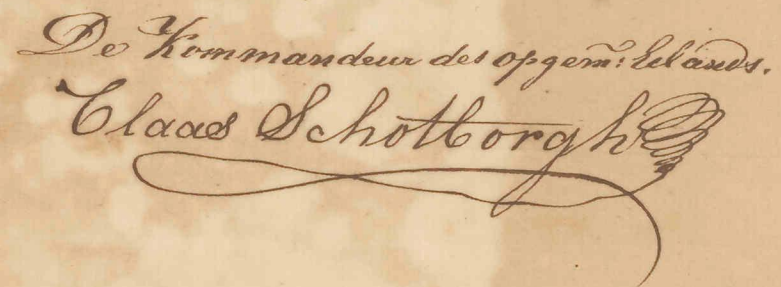 De Kommandeur des opgem: Eilands.
Claas Schotborgh